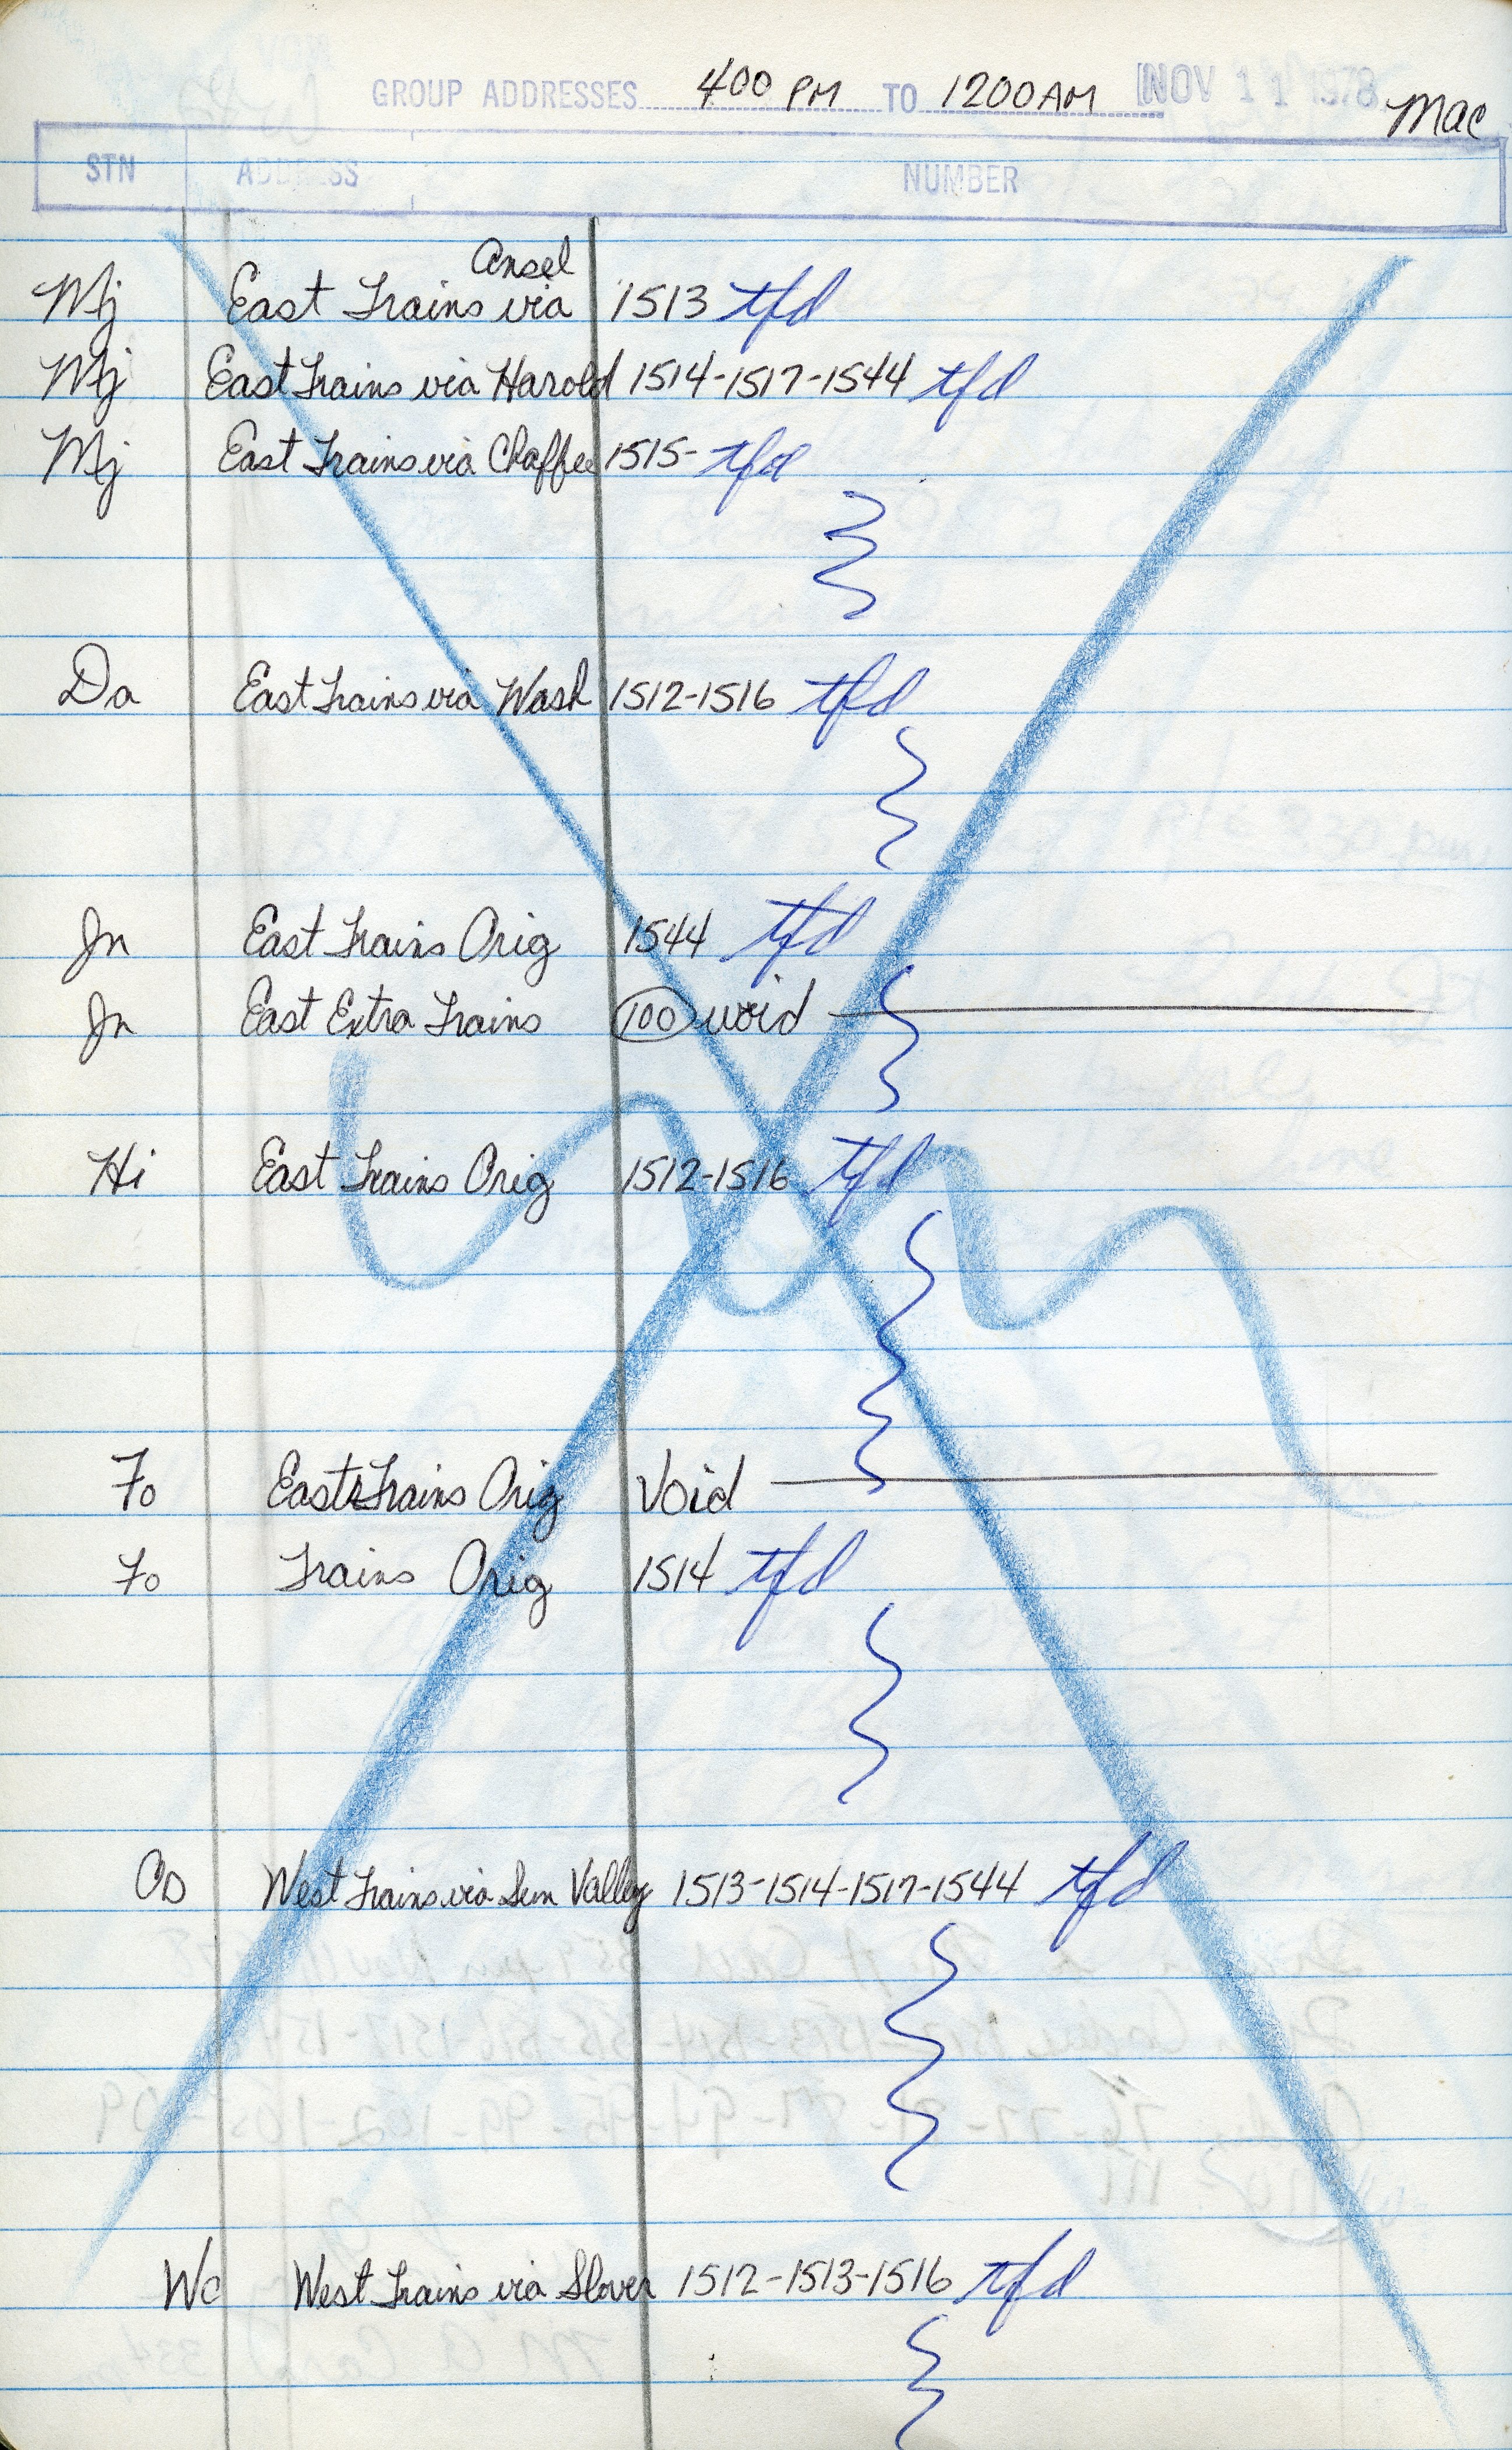 GROUP ADDRESSES 400 PM TO 1200 AM NOV 11 1978 Mac
STN ADDRESS NUMBER
Ansel
Mj East Trains via 1513 tfd
Mj East Trains via Harold 1514-1517-1544 tfd
Mj East Trains via Chaffee 1515- tfd
Da East Trains via Wash 1512-1516 tfd
Jn East Trains Orig 1544 tfd
Jn East Extra Trains 100 void
Hi East Trains Orig 1512-1516 tfd
Fo East Trains Orig Void
Fo Trains Orig 1514 tfd
Os West Trains via Sun Valley 1513-1514-1517-1544 tfd
Wc West Trains via Slover 1512-1513-1516 tfd